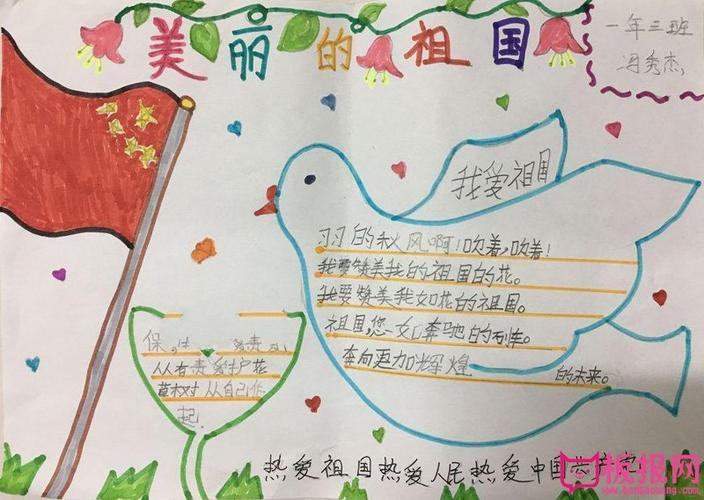 美丽的祖国
一年三班
冯秀杰
我爱祖国
羽的秋风啊!吹着,吹着!
我要赞美我的祖国的花。
我要赞美我如花的祖国。
祖国,您如奔驰的列车。
奔向更加辉煌 的未来。
保 责
人人有责爱护花
草树 从自己作
起.
热爱祖国热爱人民热爱中国共
板报网